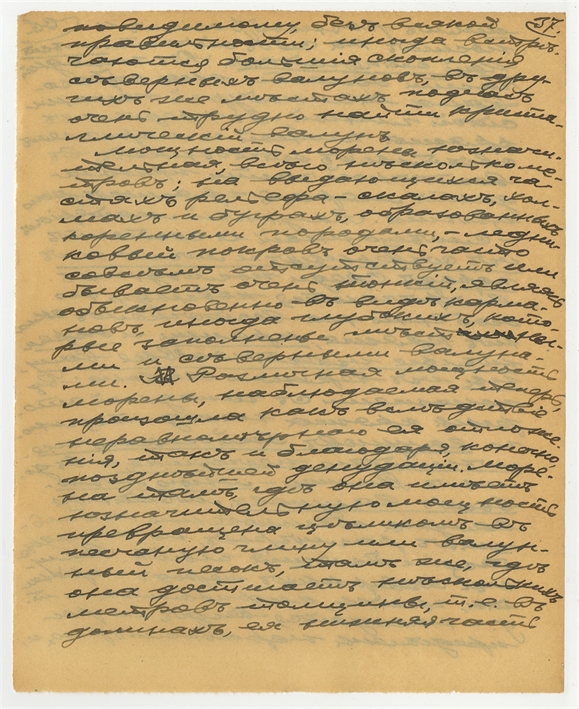 57.
повидимому, безъ всякой
правильности; иногда встрѣ-
чаются большія скопленія
сѣверныхъ валуновъ, въ дру-
гихъ же мѣстахъ подчасъ
очень трудно найти криста-
лическій валунъ
Мощность морены незначи-
тельная, всего нѣсколько ме-
тровъ; на выдающихся ча-
стяхъ рельефа – скалахъ, хол-
махъ и буграхъ, образованныхъ
коренными породами, – ледни-
ковый покровъ очень часто
совсѣмъ отсутствуетъ или
бываетъ очень тонкій, являясь
обыкновенно въ видѣ карма-
новъ, иногда глубокихъ, кото-
рые заполнены мѣстны-
ми и сѣверными валуна-
ми. Различная мощность
морены, наблюдаемая теперь,
произошла какъ вслѣдствіе
неравномѣрнаго ея отложе-
нія, такъ и благодаря, конечно,
позднѣйшей денудаціи. Море-
на тамъ, гдѣ она имѣетъ
незначительную мощность
превращена цѣликомъ въ
песчаную глину или валун-
ный песокъ, тамъ же, гдѣ
она достигаетъ нѣсколькихъ
метровъ толщины, т. е. въ
долинахъ, ея нижняя часть